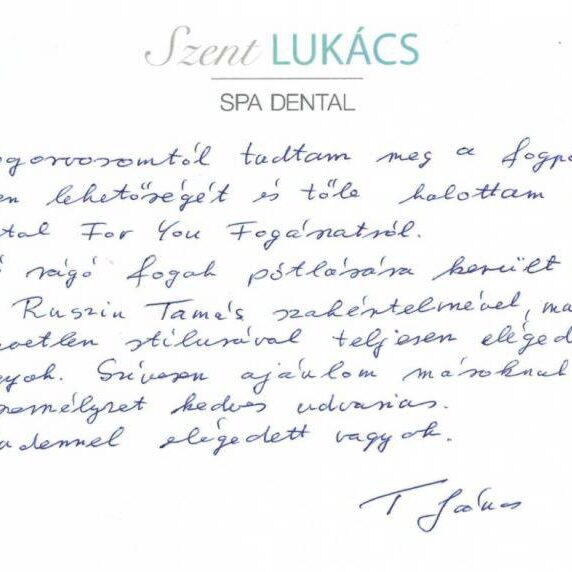 Szent LUKÁCS
SPA DENTAL
ogorvosomtól tudtam meg a fogpó
en lehetőségét és tőle halottam
tal For You Fogászatról.
ő rágó fogak pótlására került
Ruszin Tamás szakértelmével, ma
zvetlen stílusával teljesen eléged
gyok. Szívesen ajánlom másoknak
személyzet kedves udvarias.
ndennel elégedett vagyok.
T János